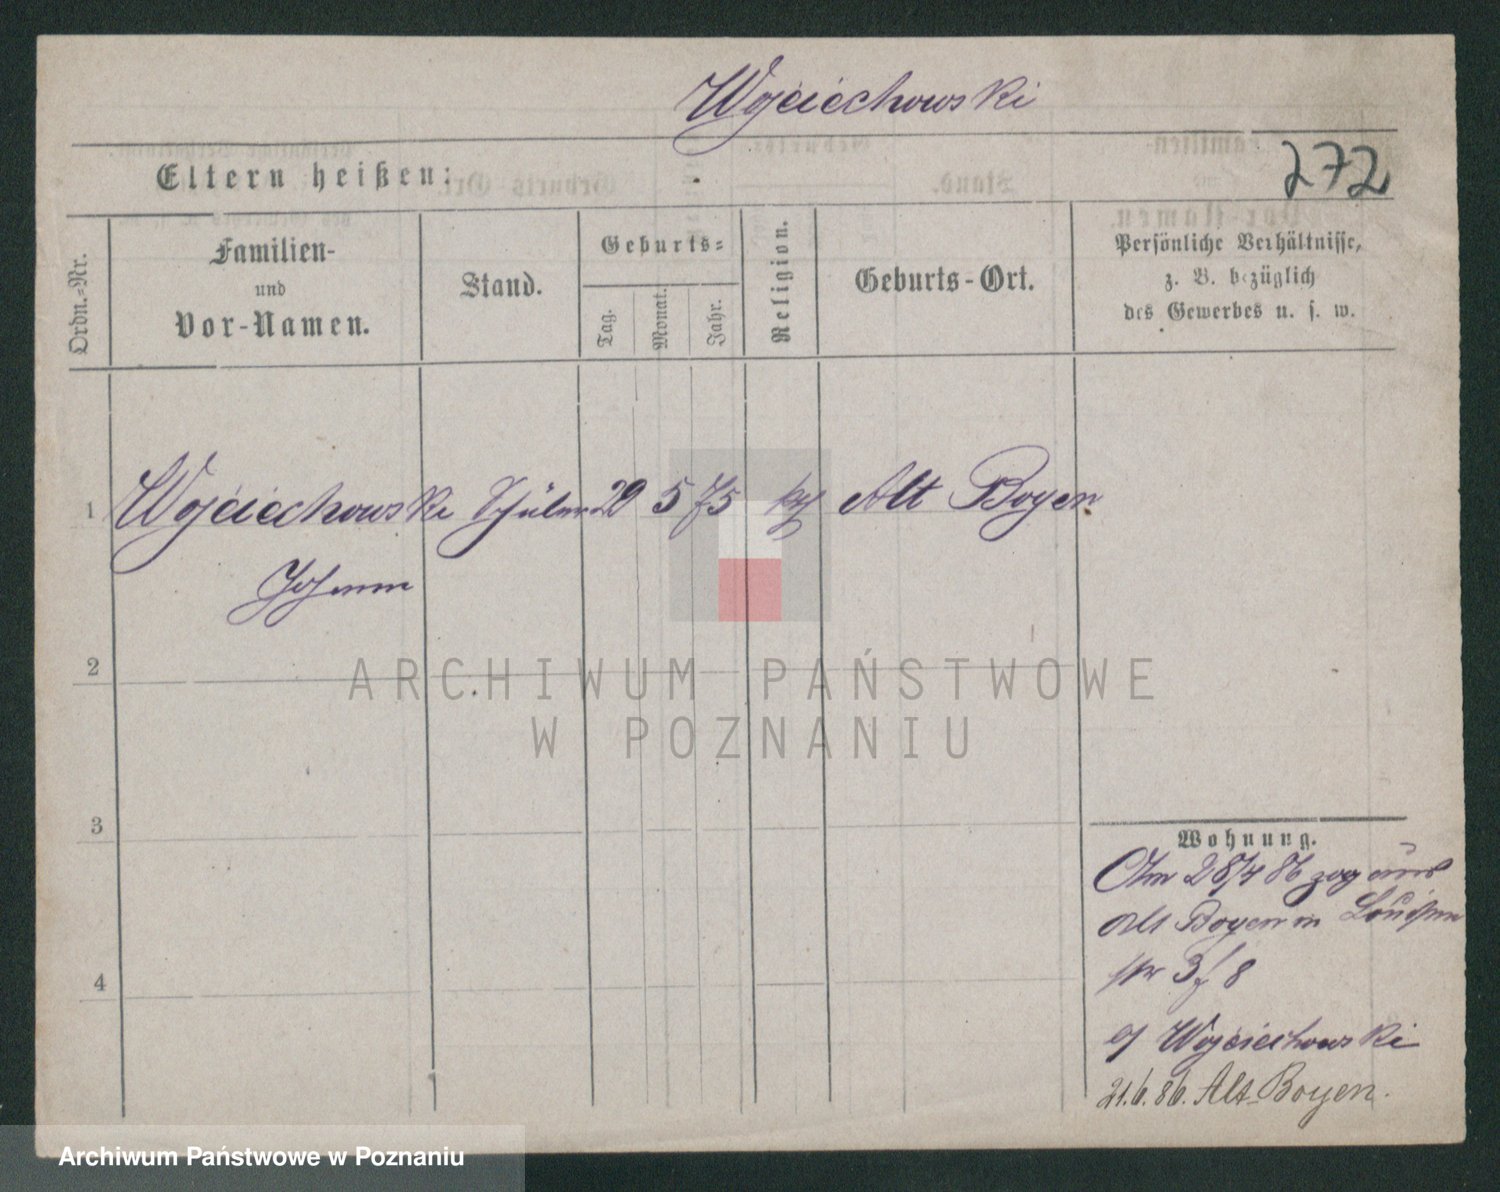 Wojciechowski
272
Eltern heißen:
Ordn.=Nr.
Familien-
und
Vor-Namen.
Stand.
Geburts=
Tag.
Monat.
Jahr.
Religion.
Geburts-Ort.
Persönliche Verhältnisse,
z. B. bezüglich
des Gewerbes u. s. w.
1 Wojciechowski Schüler 29 5 75 kth Alt Boyen
Johann
2
ARCHIWUM PAŃSTWOWE
W POZNANIU
3
Wohnung.
Am 28/4 86 zog aus
Alt Boyen in Louisen
str 3 f 8
Wojciechowski
4
21.6.86. Alt-Boyen.
Archiwum Państwowe w Poznaniu